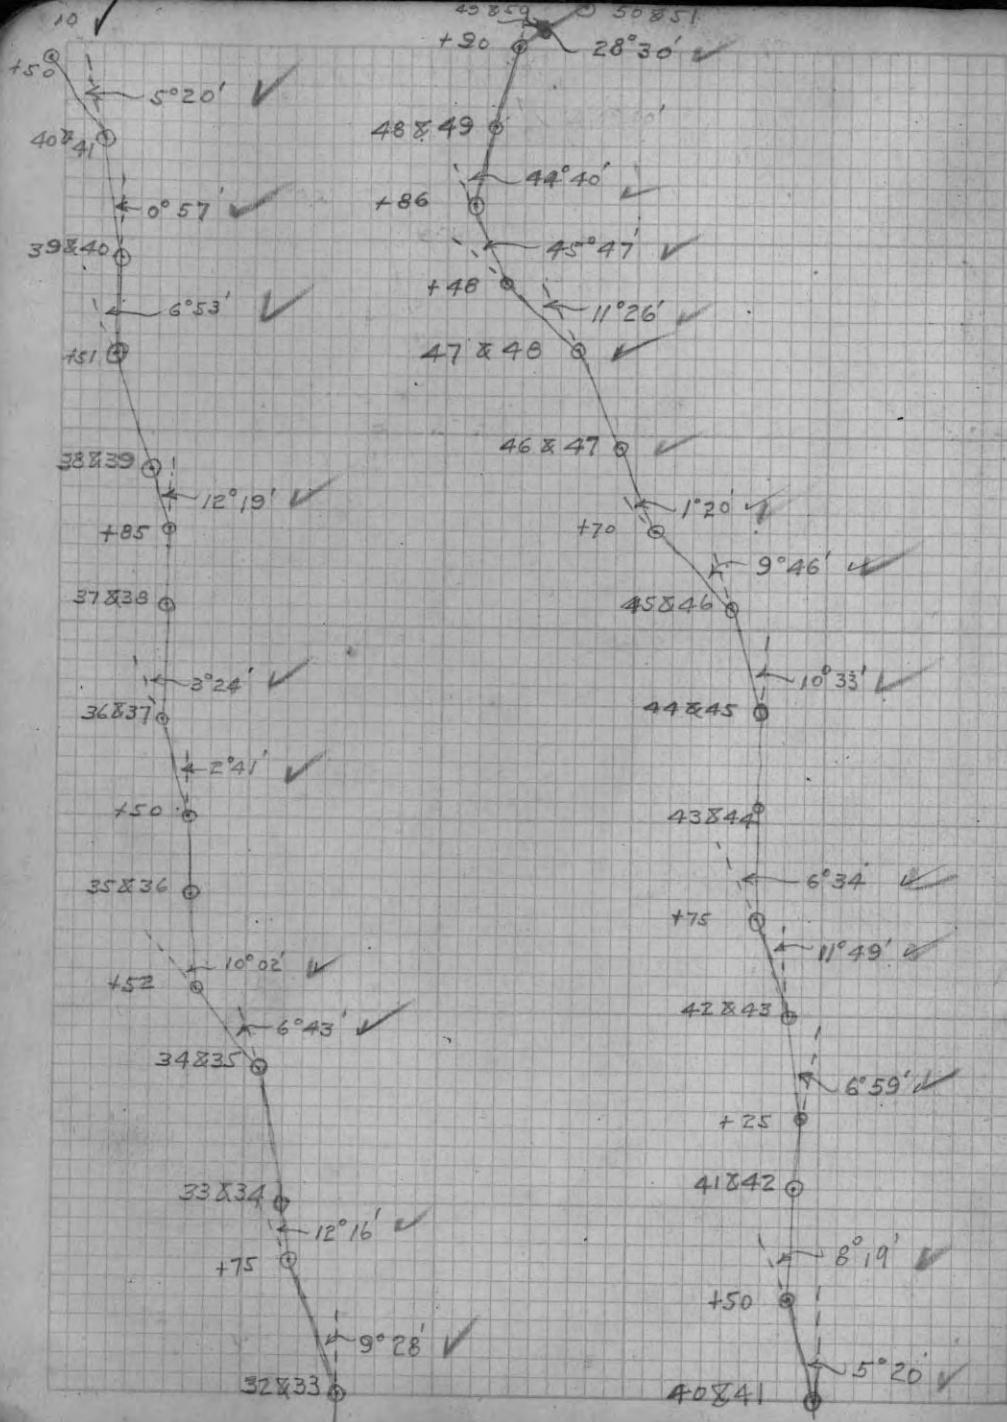 10
+50
5°20'
40&41
0°57'
39&40
6°53'
+51
38&39
12°19'
+85
37&38
3°24'
36&37
2°41'
+50
35&36
10°02'
+52
6°43'
34&35
33&34
12°16'
+75
9°28'
32&33
50&51
+20
28°30'
48&49
44°40'
+86
45°47'
+48
11°26'
47&48
46&47
1°20'
+70
9°46'
45&46
10°33'
44&45
43&44
6°34'
+75
11°49'
42&43
6°59'
+25
41&42
8°19'
+50
5°20'
40&41